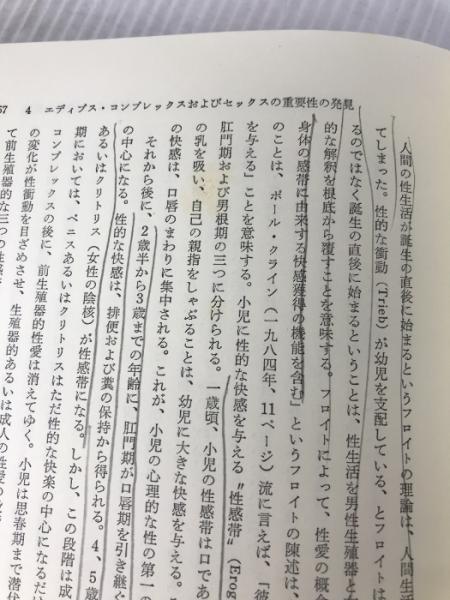 57　4　エディプス・コンプレックスおよびセックスの重要性の発見
人間の性生活が誕生の直後に始まるというフロイトの理論は、人間生活
てしまった。性的な衝動（Trieb）が幼児を支配している、とフロイト
るのではなく誕生の直後に始まるということは、性生活を男性生殖器と
的な解釈を根底から覆すことを意味する。フロイトによって、性愛の概
身体の感帯に由来する快感獲得の機能を含む」というフロイトの陳述は、
のことは、ポール・クライン（一九八四年、11ページ）流に言えば、「彼
を与える」ことを意味する。小児に性的な快感を与える〝性感帯〟（Erog
肛門期および男根期の三つに分けられる。一歳頃、小児の性感帯は口であ
の乳を吸い、自己の親指をしゃぶることは、幼児に大きな快感を与える。
の快感は、口唇のまわりに集中される。これが、小児の心理的な性の第一の
それから後に、2歳半から3歳までの年齢に、肛門期が口唇期を引き継ぐ
の中心になる。性的な快感は、排便および糞の保持から得られる。4、5歳
あるいはクリトリス（女性の陰核）が性感帯になる。しかし、この段階は成
期においては、ペニスあるいはクリトリスはただ性的な快楽の中心になるだけ
コンプレックスの後に、前生殖器的性愛は消えてゆく。小児は思春期まで潜伏
の変化が性衝動を目ざめさせ、生殖器的あるいは成人の性愛の
て前生殖器的な三つの性感